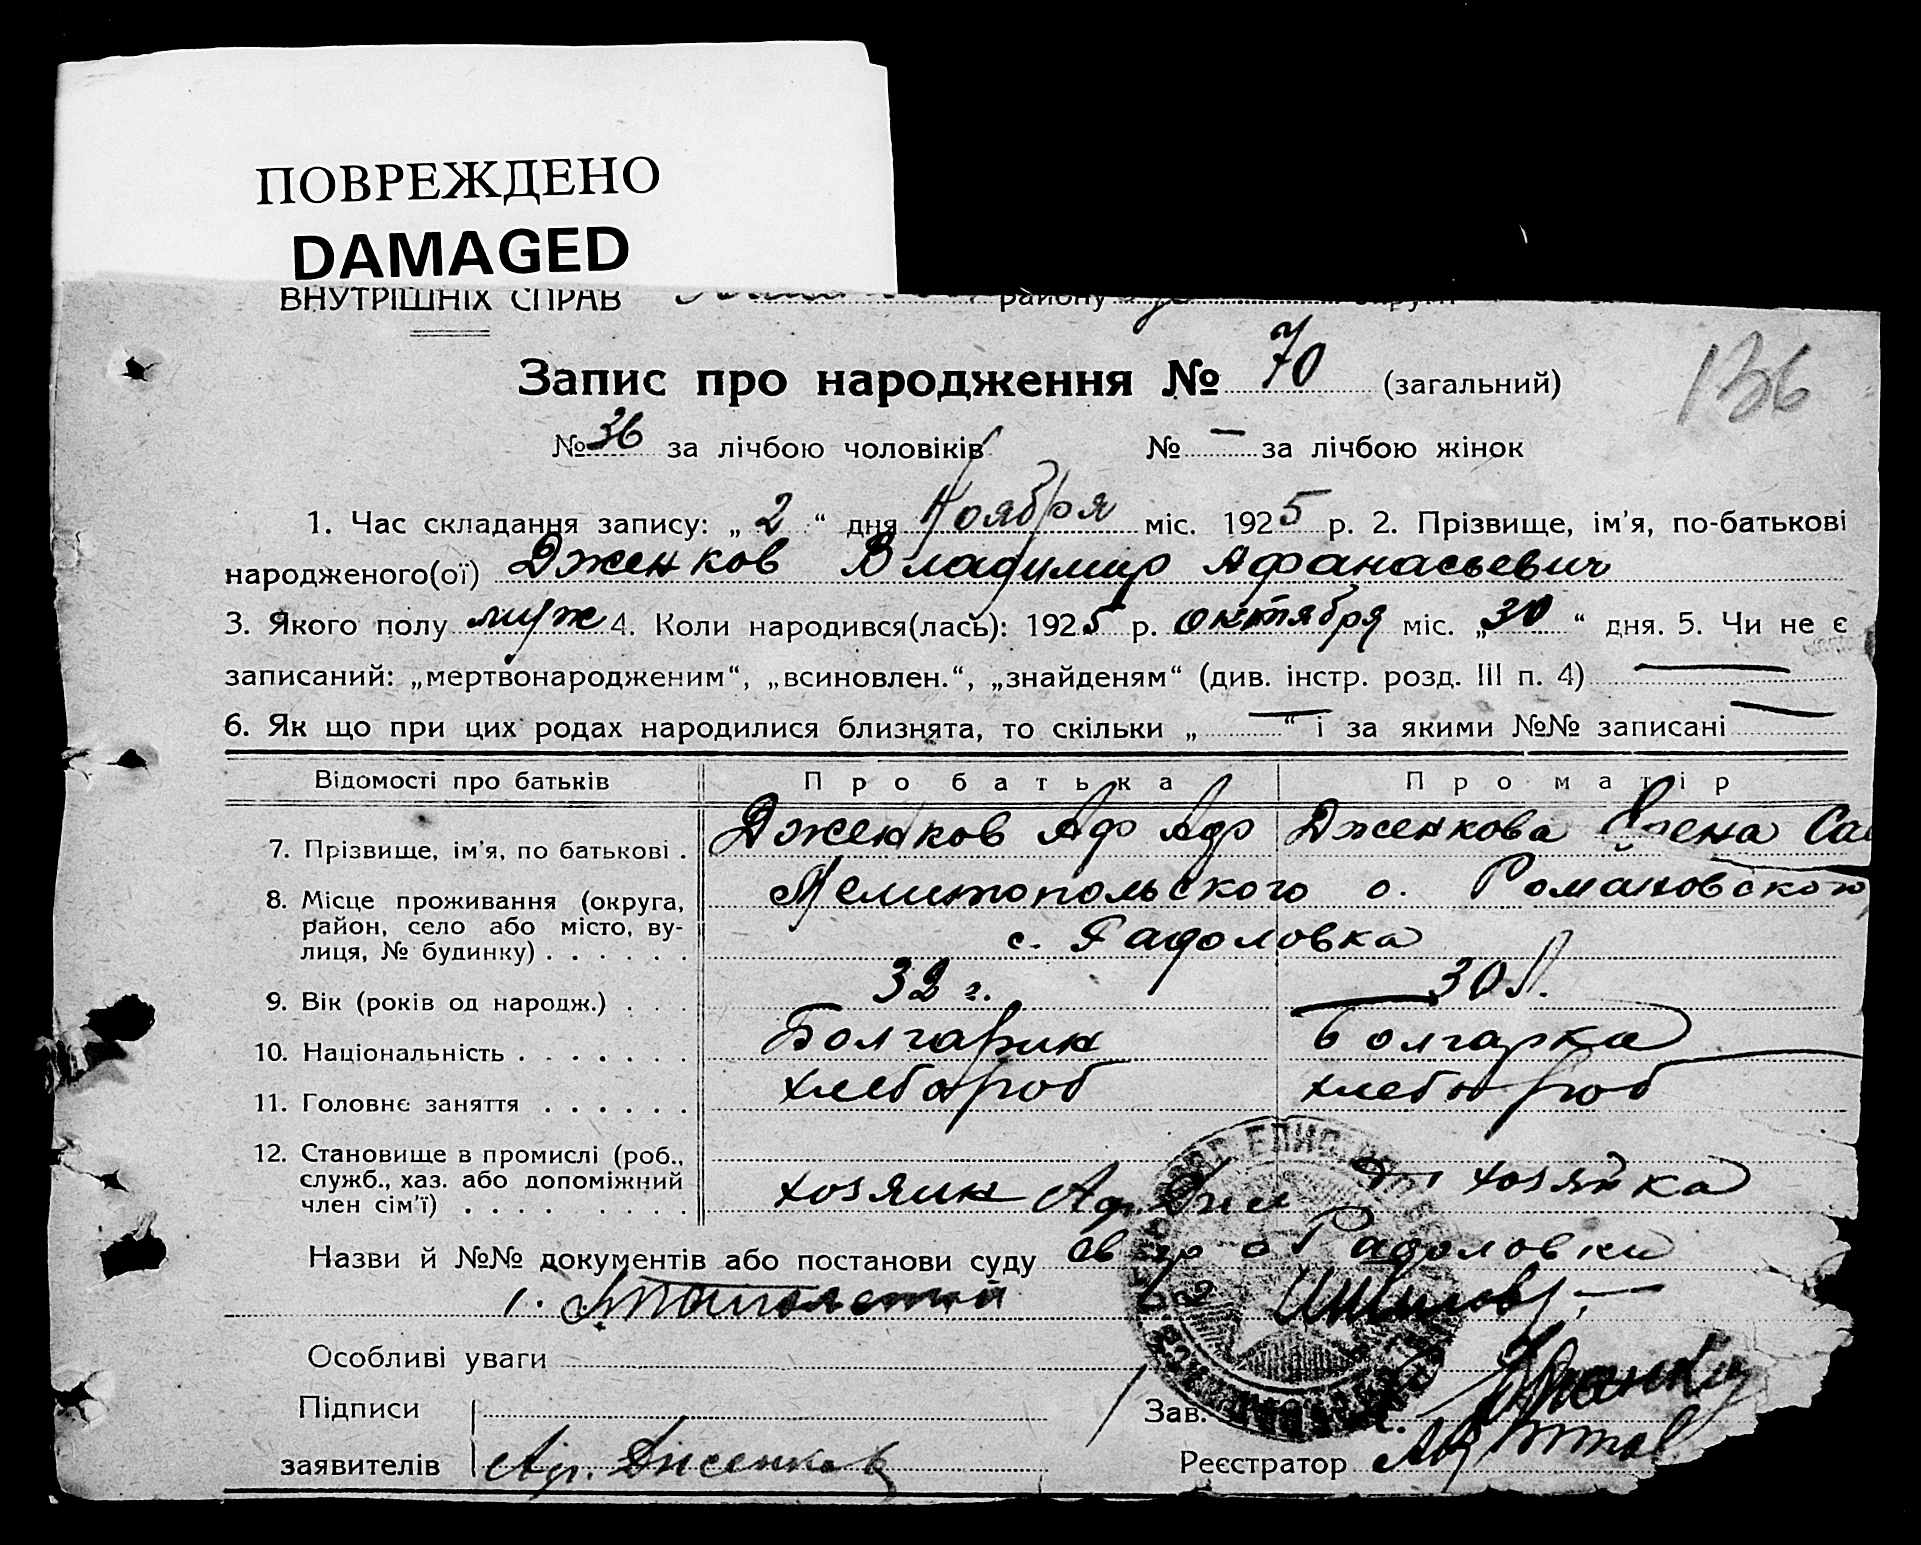 ПОВРЕЖДЕНО
DAMAGED
ВНУТРІШНІХ СПРАВ району округи
Запис про народження № 70 (загальний)
136
№ 36 за лічбою чоловіків № — за лічбою жінок
1. Час складання запису: „2“ дня Ноября міс. 1925 р. 2. Прізвище, ім'я, по-батькові
народженого(ої) Дженков Владимир Афанасьевич
3. Якого полу муж 4. Коли народився(лась): 1925 р. октября міс. „30“ дня. 5. Чи не є
записаний: „мертвонародженим“, „всиновлен.“, „знайденям“ (див. інстр. розд. III п. 4) —
6. Як що при цих родах народилися близнята, то скільки „—“ і за якими №№ записані —
Відомості про батьків Про батька Про матір
7. Прізвище, ім'я, по батькові . Дженков Аф Аф Дженкова Са
8. Місце проживання (округа, Мелитопольского о. Романовского
район, село або місто, ву-
лиця, № будинку) . . . . . . с. Радоловка
9. Вік (років од народж.) . . . 32 г. 30 л.
10. Національність . . . . . . . Болгарин Болгарка
11. Головнє заняття . . . . . . хлебороб хлебороб
12. Становище в промислі (роб.,
служб., хаз. або допоміжний
член сім'ї) . . . . . . . . хозяин хозяйка
Назви й №№ документів або постанови суду Радоловки
Особливі уваги
Підписи Зав.
заявителів Аф. Дженков Реєстратор